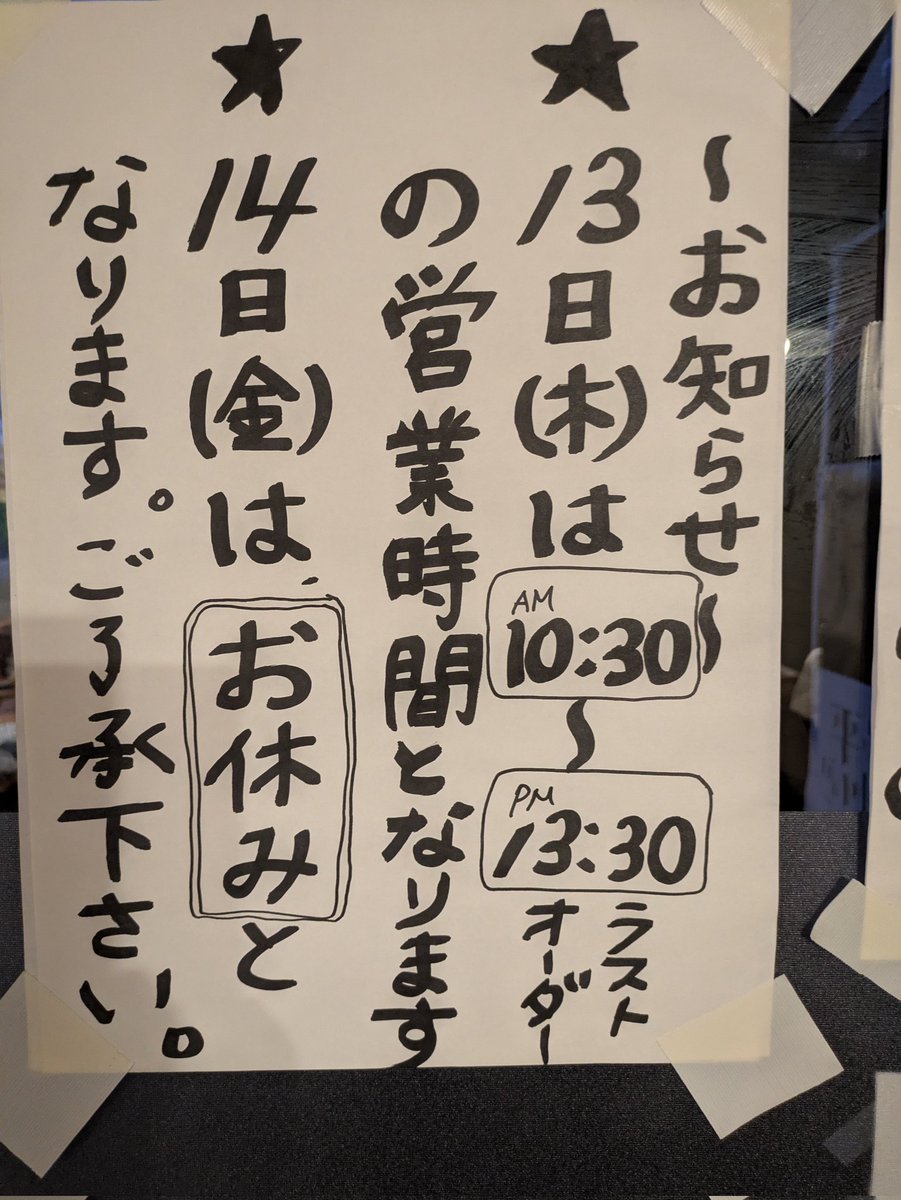 〜お知らせ〜
★13日(木)は AM 10:30 〜 PM 13:30 ラストオーダー
の営業時間となります
★14日(金)は、お休みと
なります。ごろ承下さい。